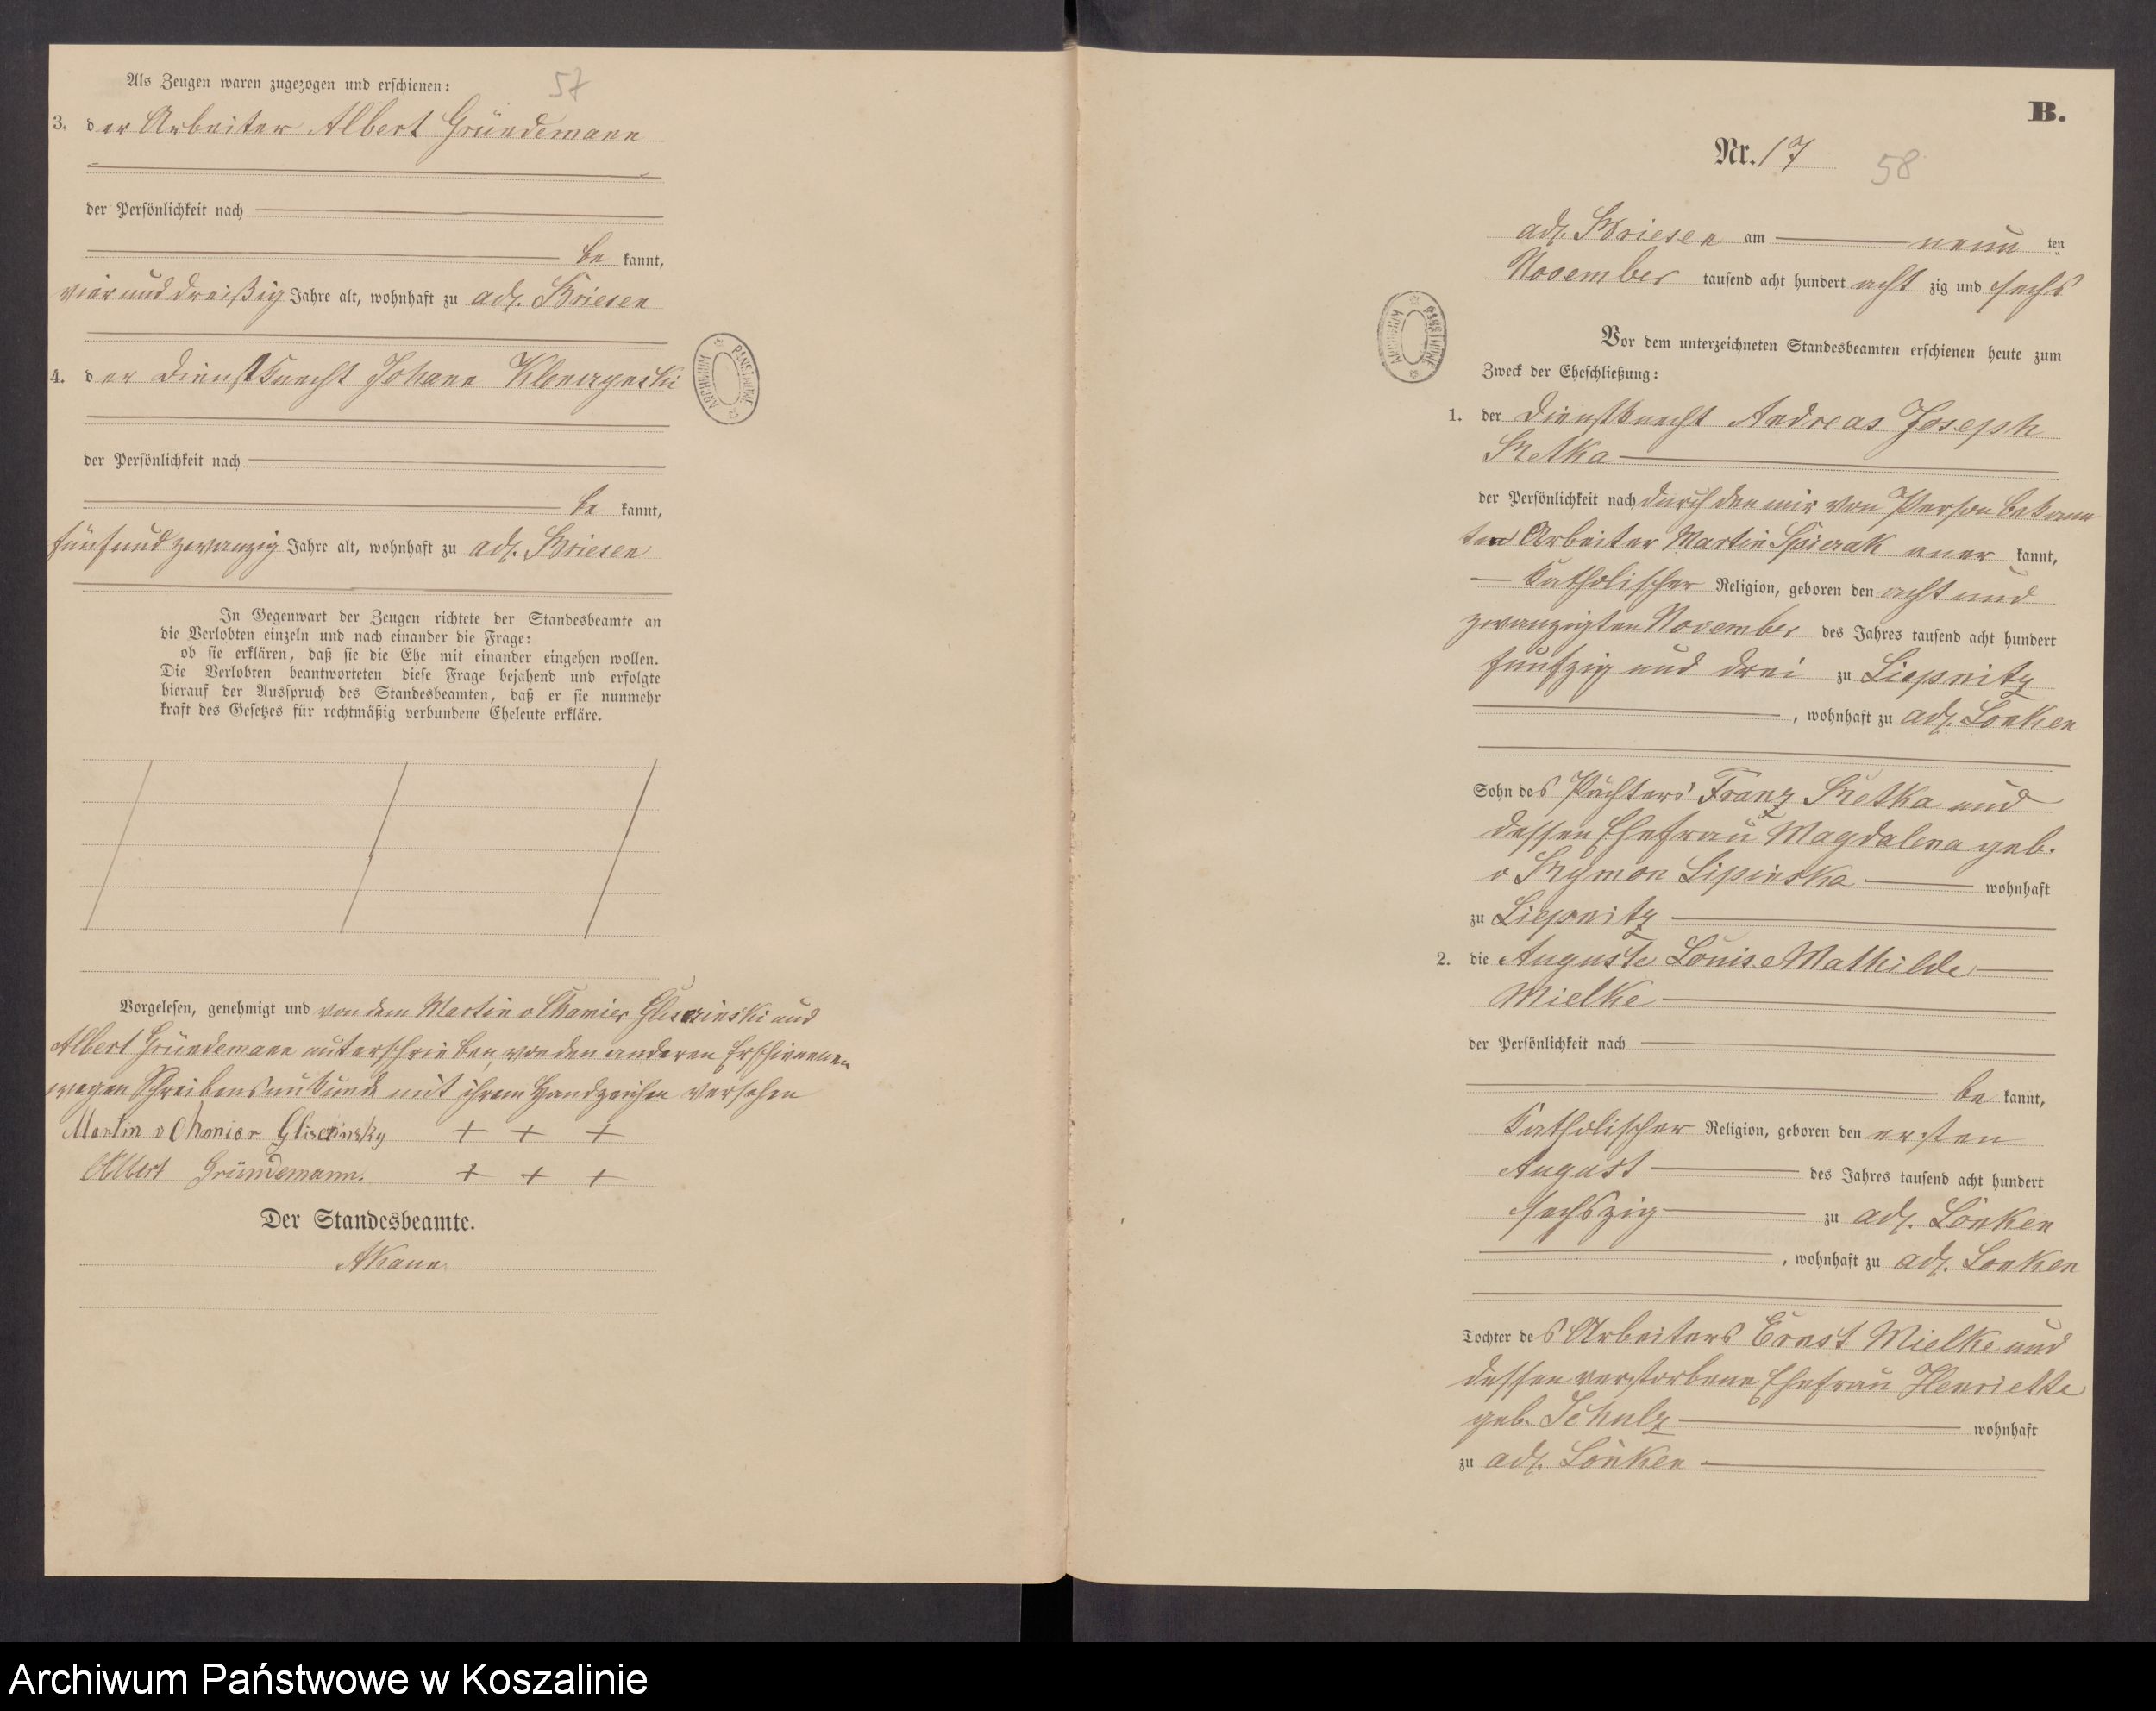 57
Als Zeugen waren zugezogen und erschienen:
3. der Arbeiter Albert Gründemann
der Persönlichkeit nach
be kannt,
vier und dreißig Jahre alt, wohnhaft zu adl. Briesen
4. der Dienstknecht Johann Klonczynski
der Persönlichkeit nach
be kannt,
fünf und zwanzig Jahre alt, wohnhaft zu adl. Briesen
In Gegenwart der Zeugen richtete der Standesbeamte an
die Verlobten einzeln und nach einander die Frage:
ob sie erklären, daß sie die Ehe mit einander eingehen wollen.
Die Verlobten beantworteten diese Frage bejahend und erfolgte
hierauf der Ausspruch des Standesbeamten, daß er sie nunmehr
kraft des Gesetzes für rechtmäßig verbundene Eheleute erkläre.
Vorgelesen, genehmigt und von dem Martin v Chamier Gliszinski und
Albert Gründemann unterschrieben, von den anderen Erschienenen
wegen Schreibensunkunde mit ihrem Handzeichen versehen
Martin v Chamier Gliszinsky + + +
Albert Gründemann. + + +
Der Standesbeamte.
ARCHIWUM PAŃSTWOWE
B.
Nr. 17
58
adl. Briesen am neun ten
November tausend acht hundert acht zig und sechs
Vor dem unterzeichneten Standesbeamten erschienen heute zum
Zweck der Eheschließung:
1. der Dienstknecht Andreas Joseph
Retka
der Persönlichkeit nach durch den mir von Person bekann
ten Arbeiter Martin Spierak aner kannt,
katholischer Religion, geboren den acht und
zwanzigsten November des Jahres tausend acht hundert
fünfzig und drei zu Liepnitz
, wohnhaft zu adl. Lonken
Sohn des Pächters Franz Retka und
dessen Ehefrau Magdalena geb.
v Rymon Lipinska wohnhaft
zu Liepnitz
2. die Auguste Louise Mathilde
Mielke
der Persönlichkeit nach
be kannt,
katholischer Religion, geboren den ersten
August des Jahres tausend acht hundert
sechszig zu adl. Lonken
, wohnhaft zu adl. Lonken
Tochter des Arbeiters Ernst Mielke und
dessen verstorbene Ehefrau Henriette
geb. Schulz wohnhaft
zu adl. Lonken
ARCHIWUM PAŃSTWOWE
Archiwum Państwowe w Koszalinie